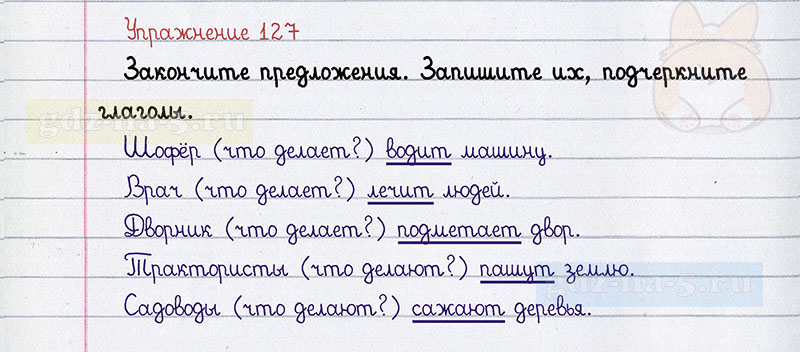 Упражнение 127
Закончите предложения. Запишите их, подчеркните
глаголы.
gdz-na-5.ru
Шофёр (что делает?) водит машину.
Врач (что делает?) лечит людей.
Дворник (что делает?) подметает двор.
Трактористы (что делают?) пашут землю.
gdz-na-5.ru
Садоводы (что делают?) сажают деревья.